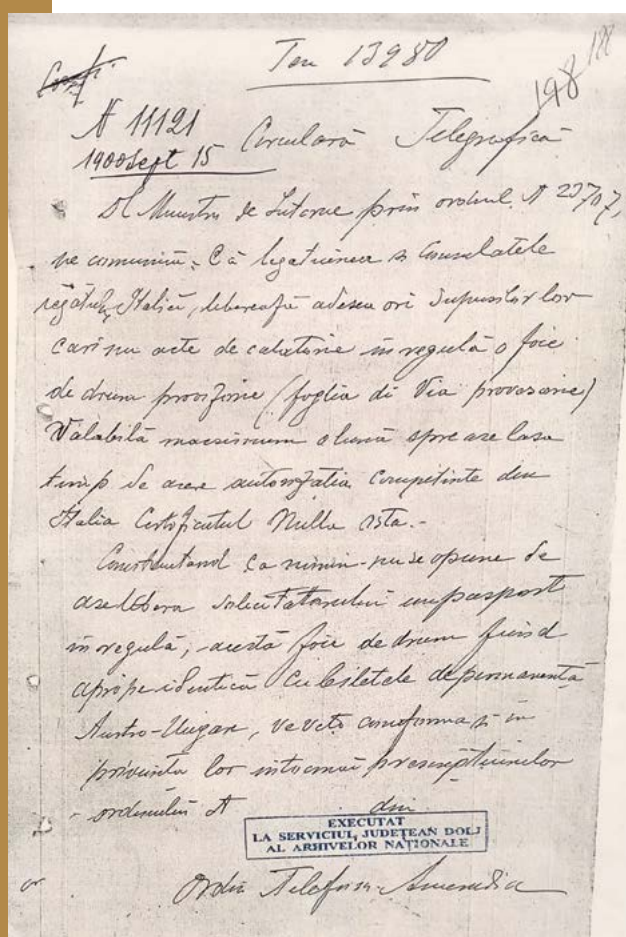 Ten 13980
198
188
N 11121
1900 Sept 15
Circulară Telegrafică
Dl Ministru de Interne prin ordinul N 23707,
ne comunica, Că legatiunea si Consulatele
regatului Italiei, liberează adesea ori Supusilor lor
cari nu acte de calatorie in regulă o foie
de drum provizorie (foglia di Via provesorie)
Valabilă macsimum o lună spre a se lasa
timp de a cere autorizatia Competinte din
Italia Certificatul Nulla Osta.-
Constantand Ca nimin-nu se opune de
a se libera solicitatorului un pasport
in regulă, acestă foie de drum fiind
aprópe identică Cu biletele de permanentă
Austro-Ungar, veveti conforma si in
privinta lor intocmai prescriptiunelor
ordinului N din
EXECUTAT
LA SERVICIUL JUDEȚEAN DOLJ
AL ARHIVELOR NAȚIONALE
Ordin